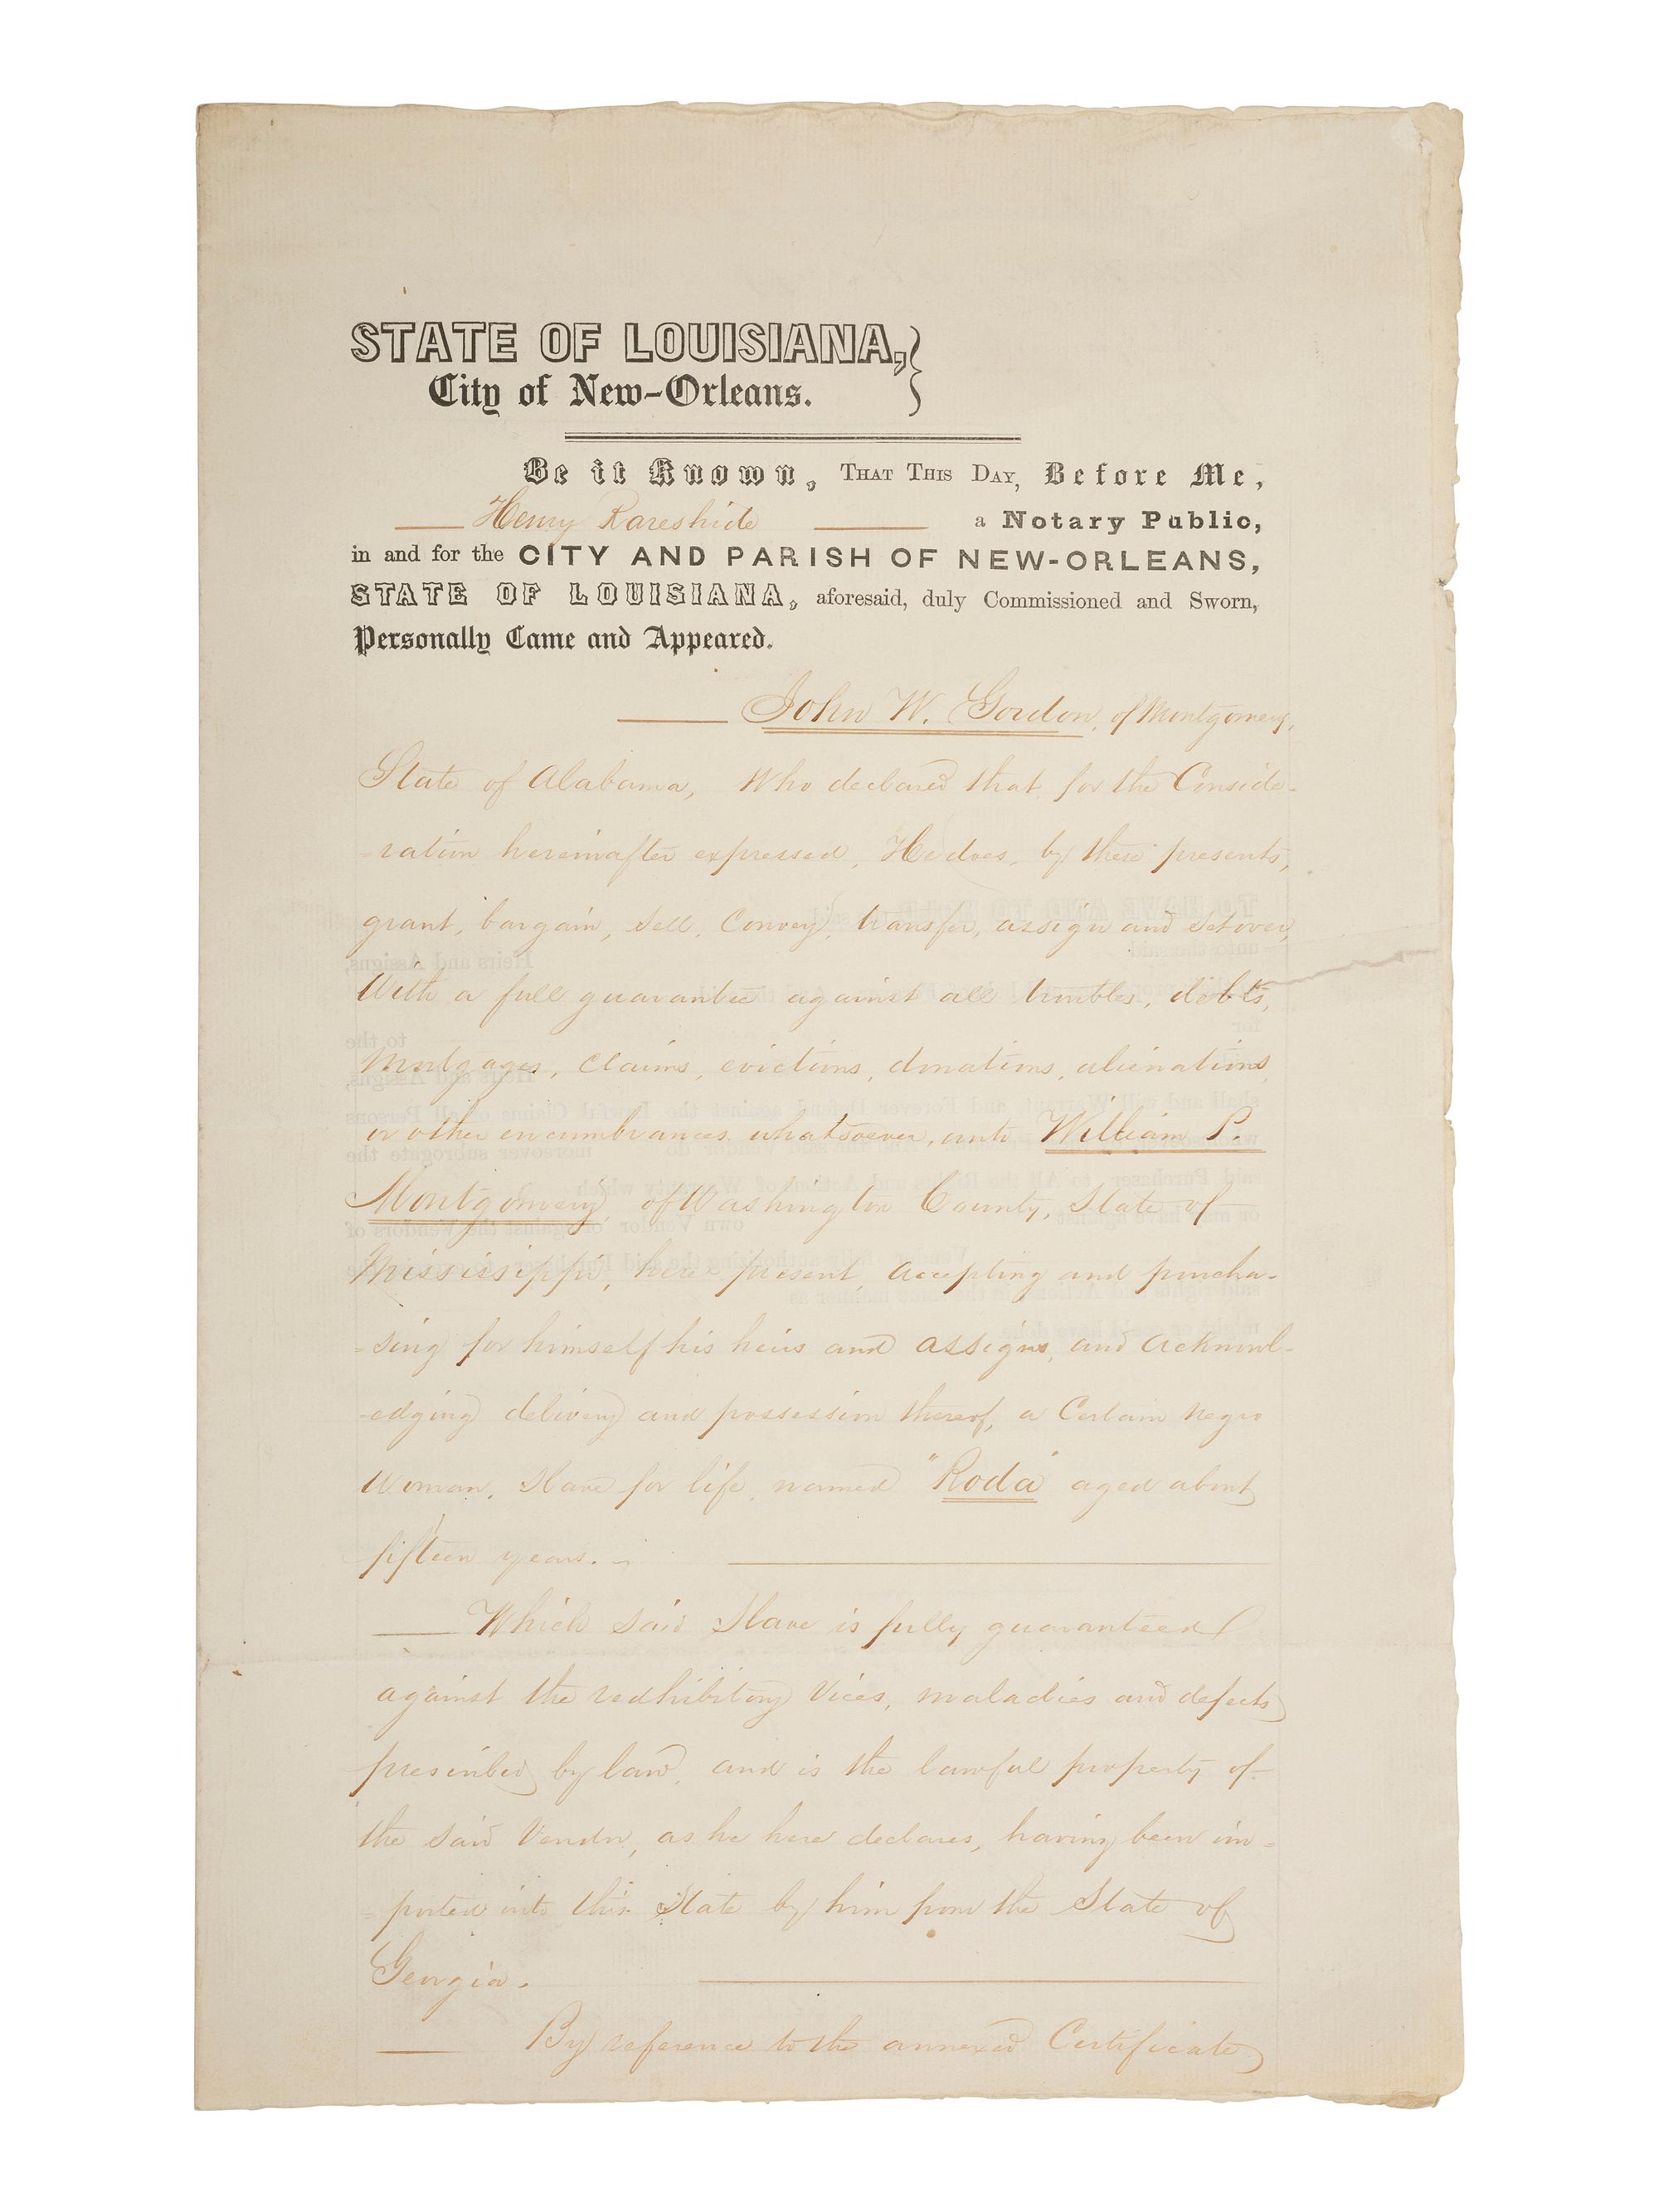 STATE OF LOUISIANA,
City of New-Orleans.
Be it Known, THAT THIS DAY, Before Me,
Henry Rareshide a Notary Public,
in and for the CITY AND PARISH OF NEW-ORLEANS,
STATE OF LOUISIANA, aforesaid, duly Commissioned and Sworn,
Personally Came and Appeared.
John W. Gordon, of Montgomery,
State of Alabama, Who declared that for the Conside-
-ration hereinafter expressed, He does, by these presents,
grant, bargain, Sell, Convey, transfer, assign and Set over,
With a full guarantee against all troubles, debts,
Mortgages, Claims, evictions, donations, alienations
or other encumbrances whatsoever, unto William P.
Montgomery of Washington County, State of
Mississippi, here present, accepting and purcha-
-sing for himself his heirs and assigns, and acknowl-
-edging delivery and possession thereof, a Certain Negro
Woman, Slave for life, named "Roda" aged about
fifteen years.
Which Said Slave is fully guaranteed
against the redhibitory Vices, maladies and defects
prescribed by law, and is the lawful property of
the Said Vendor, as he here declares, having been im-
-ported into this State by him from the State of
Georgia.
By reference to the annexed Certificate